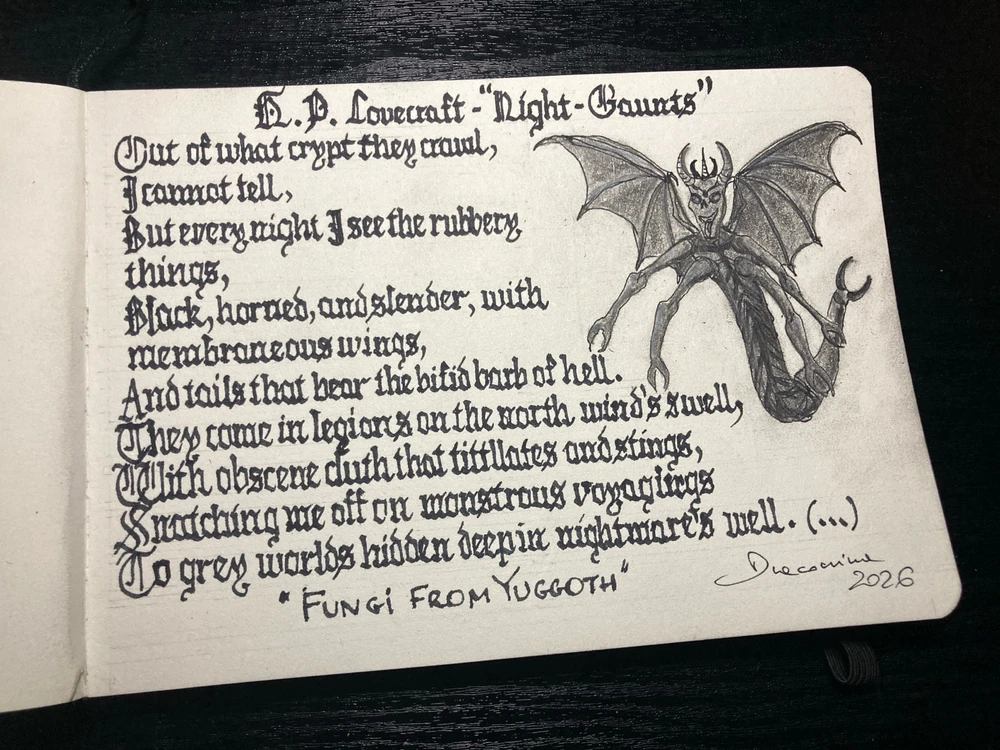 H. P. Lovecraft - "Night-Gaunts"
Out of what crypt they crawl,
I cannot tell,
But every night I see the rubbery
things,
Black, horned, and slender, with
membraneous wings,
And tails that bear the bifid barb of hell.
They come in legions on the north wind's swell,
With obscene cluth that tittllates and stings,
Snatching me off on monstrous voyagiings
To grey worlds hidden deep in nightmare's well. (...)
"FUNGI FROM YUGGOTH"
2026